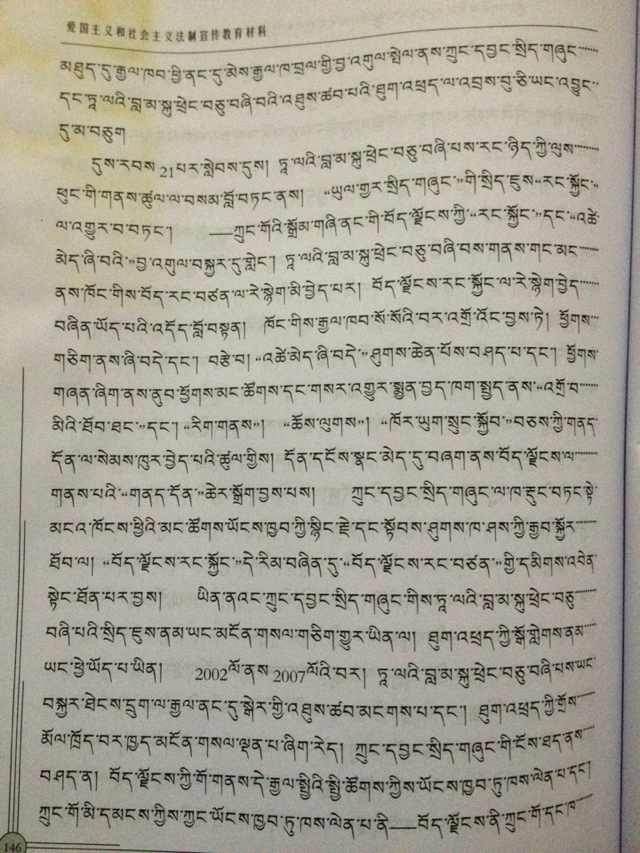 爱国主义和社会主义法制宣传教育材料
མཐུད་དུ་རྒྱལ་ཁབ་ཕྱི་ནང་དུ་མེས་རྒྱལ་ཁ་བྲལ་གྱི་བྱ་འགུལ་སྤེལ་ནས་ཀྲུང་དབྱང་སྲིད་གཞུང་
དང་ཏཱ་ལའི་བླ་མ་སྐུ་ཕྲེང་བཅུ་བཞི་བའི་འཐུས་ཚབ་པའི་ཐུག་འཕྲད་ལ་འབྲས་བུ་ཅི་ཡང་འབྱུང་
དུ་མ་བཅུག
དུས་རབས་21པར་སླེབས་དུས། ཏཱ་ལའི་བླ་མ་སྐུ་ཕྲེང་བཅུ་བཞི་པས་རང་ཉིད་ཀྱི་ལུས་
ཕུང་གི་གནས་ཚུལ་ལ་བསམ་བློ་བཏང་ནས། “ཡུལ་གྱར་སྲིད་གཞུང་”གི་སྲིད་ཇུས“རང་སྐྱོང་”
ལ་འགྱུར་བ་བཏང་། ——ཀྲུང་གོའི་སྒྲོམ་གཞི་ནང་གི་བོད་ལྗོངས་ཀྱི་“རང་སྐྱོང་”དང་“འཚེ་
མེད་ཞི་བའི་”བྱ་འགུལ་བསྐྱར་དུ་གླེང་། ཏཱ་ལའི་བླ་མ་སྐུ་ཕྲེང་བཅུ་བཞི་བས་གནས་གང་མང་
ནས་ཁོང་གིས་བོད་རང་བཙན་ལ་རེ་སྙེག་མི་བྱེད་པར། བོད་ལྗོངས་རང་སྐྱོང་ལ་རེ་སྙེག་བྱེད་
བཞིན་ཡོད་པའི་འདོད་བློ་བསྟན། ཁོང་གིས་རྒྱལ་ཁབ་སོ་སོའི་བར་འགྲོ་འོང་བྱས་ཏེ། ཕྱོགས་
གཅིག་ནས་ཞི་བདེ་དང་། བརྩེ་བ། “འཚེ་མེད་ཞི་བདེ་”ཤུགས་ཆེན་པོས་བཤད་པ་དང་། ཕྱོགས་
གཞན་ཞིག་ནས་ནུབ་ཕྱོགས་མང་ཚོགས་དང་གསར་འགྱུར་སྨྱན་བྱད་ཁག་སྤྱད་ནས་“འགྲོ་བ་
མིའི་ཐོབ་ཐང་”དང་། “རིག་གནས”། “ཆོས་ལུགས”། “ཁོར་ཡུག་སྲུང་སྐྱོབ་”བཅས་ཀྱི་གནད་
དོན་ལ་སེམས་ཁུར་བྱེད་པའི་ཚུལ་གྱིས། དོན་དངོས་སྣང་མེད་དུ་བཞག་ནས་བོད་ལྗོངས་ལ་
གནས་པའི་“གནད་དོན་”ཆེར་སྒྲོག་བྱས་པས། ཀྲུང་དབྱང་སྲིད་གཞུང་ལ་ཁ་རྡུང་བཏང་སྟེ་
མངའ་ཁོངས་ཕྱིའི་མང་ཚོགས་ཡོངས་ཁྱབ་ཀྱི་སྙིང་རྗེ་དང་སྟོབས་ཤུགས་ཁ་ཤས་ཀྱི་རྒྱབ་སྐྱོར་
ཐོབ་ལ། “བོད་ལྗོངས་རང་སྐྱོང་”དེ་རིམ་བཞིན་དུ་“བོད་ལྗོངས་རང་བཙན་”གྱི་དམིགས་འབེན་
སྟེང་ཐོན་པར་བྱས། ཡིན་ནའང་ཀྲུང་དབྱང་སྲིད་གཞུང་གིས་ཏཱ་ལའི་བླ་མ་སྐུ་ཕྲེང་བཅུ་
བཞི་པའི་སྲིད་ཇུས་ནམ་ཡང་མངོན་གསལ་གཅིག་གྱུར་ཡིན་ལ། ཐུག་འཕྲད་ཀྱི་སྒོ་གླེགས་ནམ་
ཡང་ཕྱེ་ཡོད་པ་ཡིན། 2002ལོ་ནས་2007ལོའི་བར། ཏཱ་ལའི་བླ་མ་སྐུ་ཕྲེང་བཅུ་བཞི་པས་ཡང་
བསྐྱར་ཐེངས་དྲུག་ལ་རྒྱལ་ནང་དུ་སྒེར་གྱི་འཐུས་ཚབ་མངགས་པ་དང་། ཐུག་འཕྲད་ཀྱི་གྲོས་
མོལ་ཁྲོད་བར་ཁྱད་མངོན་གསལ་ལྡན་པ་ཞིག་རེད། ཀྲུང་དབྱང་སྲིད་གཞུང་གི་ངོས་ཐད་ནས་
བཤད་ན། བོད་ལྗོངས་ཀྱི་གོ་གནས་དེ་རྒྱལ་སྤྱིའི་སྤྱི་ཚོགས་ཀྱིས་ཡོངས་ཁྱབ་ཏུ་ཁས་ལེན་པ་དང་།
ཀྲུང་གོ་མི་དམངས་ཀྱིས་ཀྱང་ཡོངས་ཁྱབ་ཏུ་ཁས་ལེན་པ་ནི——བོད་ལྗོངས་ནི་ཀྲུང་གོ་དང་ཁ་
146